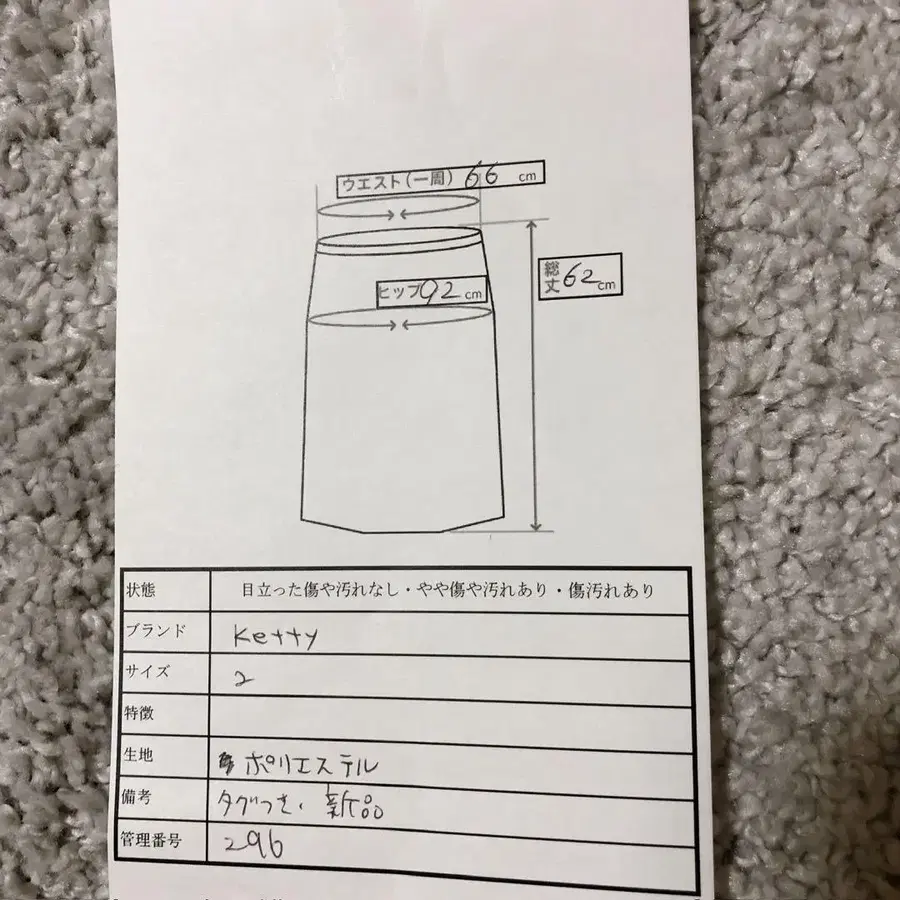 ウエスト(一周) 66 cm
ヒップ 92 cm
総丈 62 cm
状態 目立った傷や汚れなし・やや傷や汚れあり・傷汚れあり
ブランド Ketty
サイズ 2
特徴
生地 ポリエステル
備考 タグつき、新品
管理番号 296